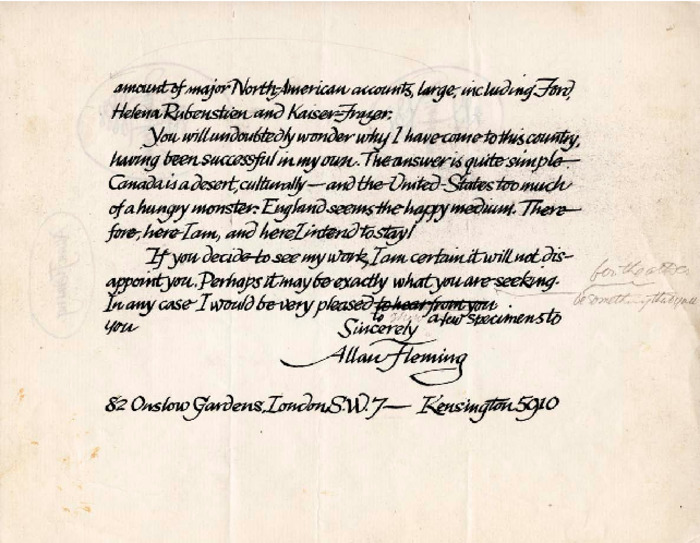 amount of major North American accounts, large, including Ford,
Helena Rubenstien and Kaiser-Frazer.
You will undoubtedly wonder why I have come to this country,
having been successful in my own. The answer is quite simple
Canada is a desert, culturally — and the United States too much
of a hungry monster. England seems the happy medium. There
fore, here I am, and here I intend to stay!
If you decide to see my work, I am certain it will not dis-
appoint you. Perhaps it may be exactly what you are seeking.
In any case I would be very pleased to hear from you
to a few specimens to
you
Sincerely
Allan Fleming
82 Onslow Gardens, London S.W.7 — Kensington 5910